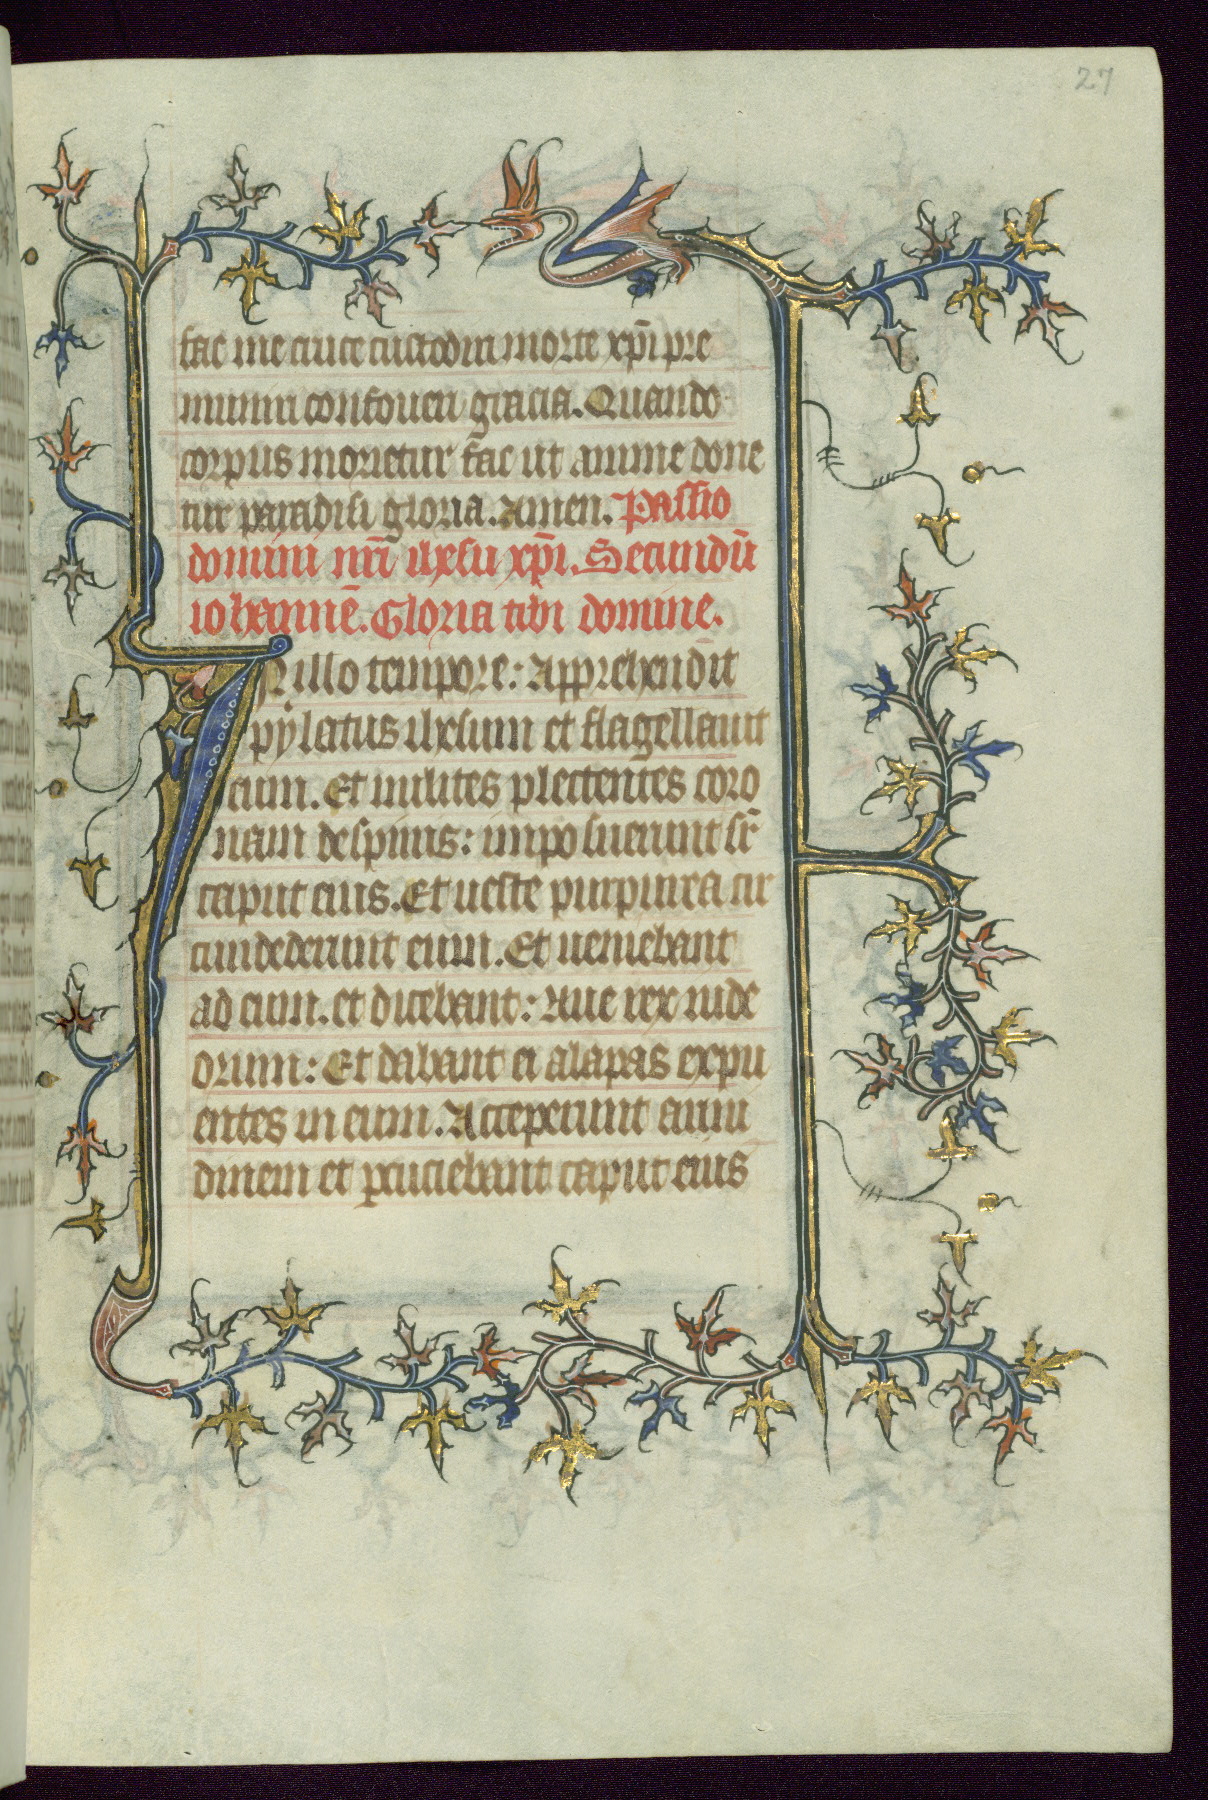 27
fac me cruce custodiri morte xp̄i pre
muniri confoueri gracia. Quando
corpus morietur fac ut anime done
tur paradisi gloria. Amen. Passio
domini nr̄i ihesu xp̄i. Secundū
iohannē. Gloria tibi domine.
In illo tempore: Apprehendit
pylatus ihesum et flagellauit
eum. Et milites plectentes coro
nam de spinis: imposuerunt sr̄
caput eius. Et ueste purpurea cir
cumdederunt eum. Et ueniebant
ad eum. et dicebant: Aue rex iude
orum: Et dabant ei alapas expu
entes in eum. Acceperunt arun
dinem et ꝑcuciebant caput eius